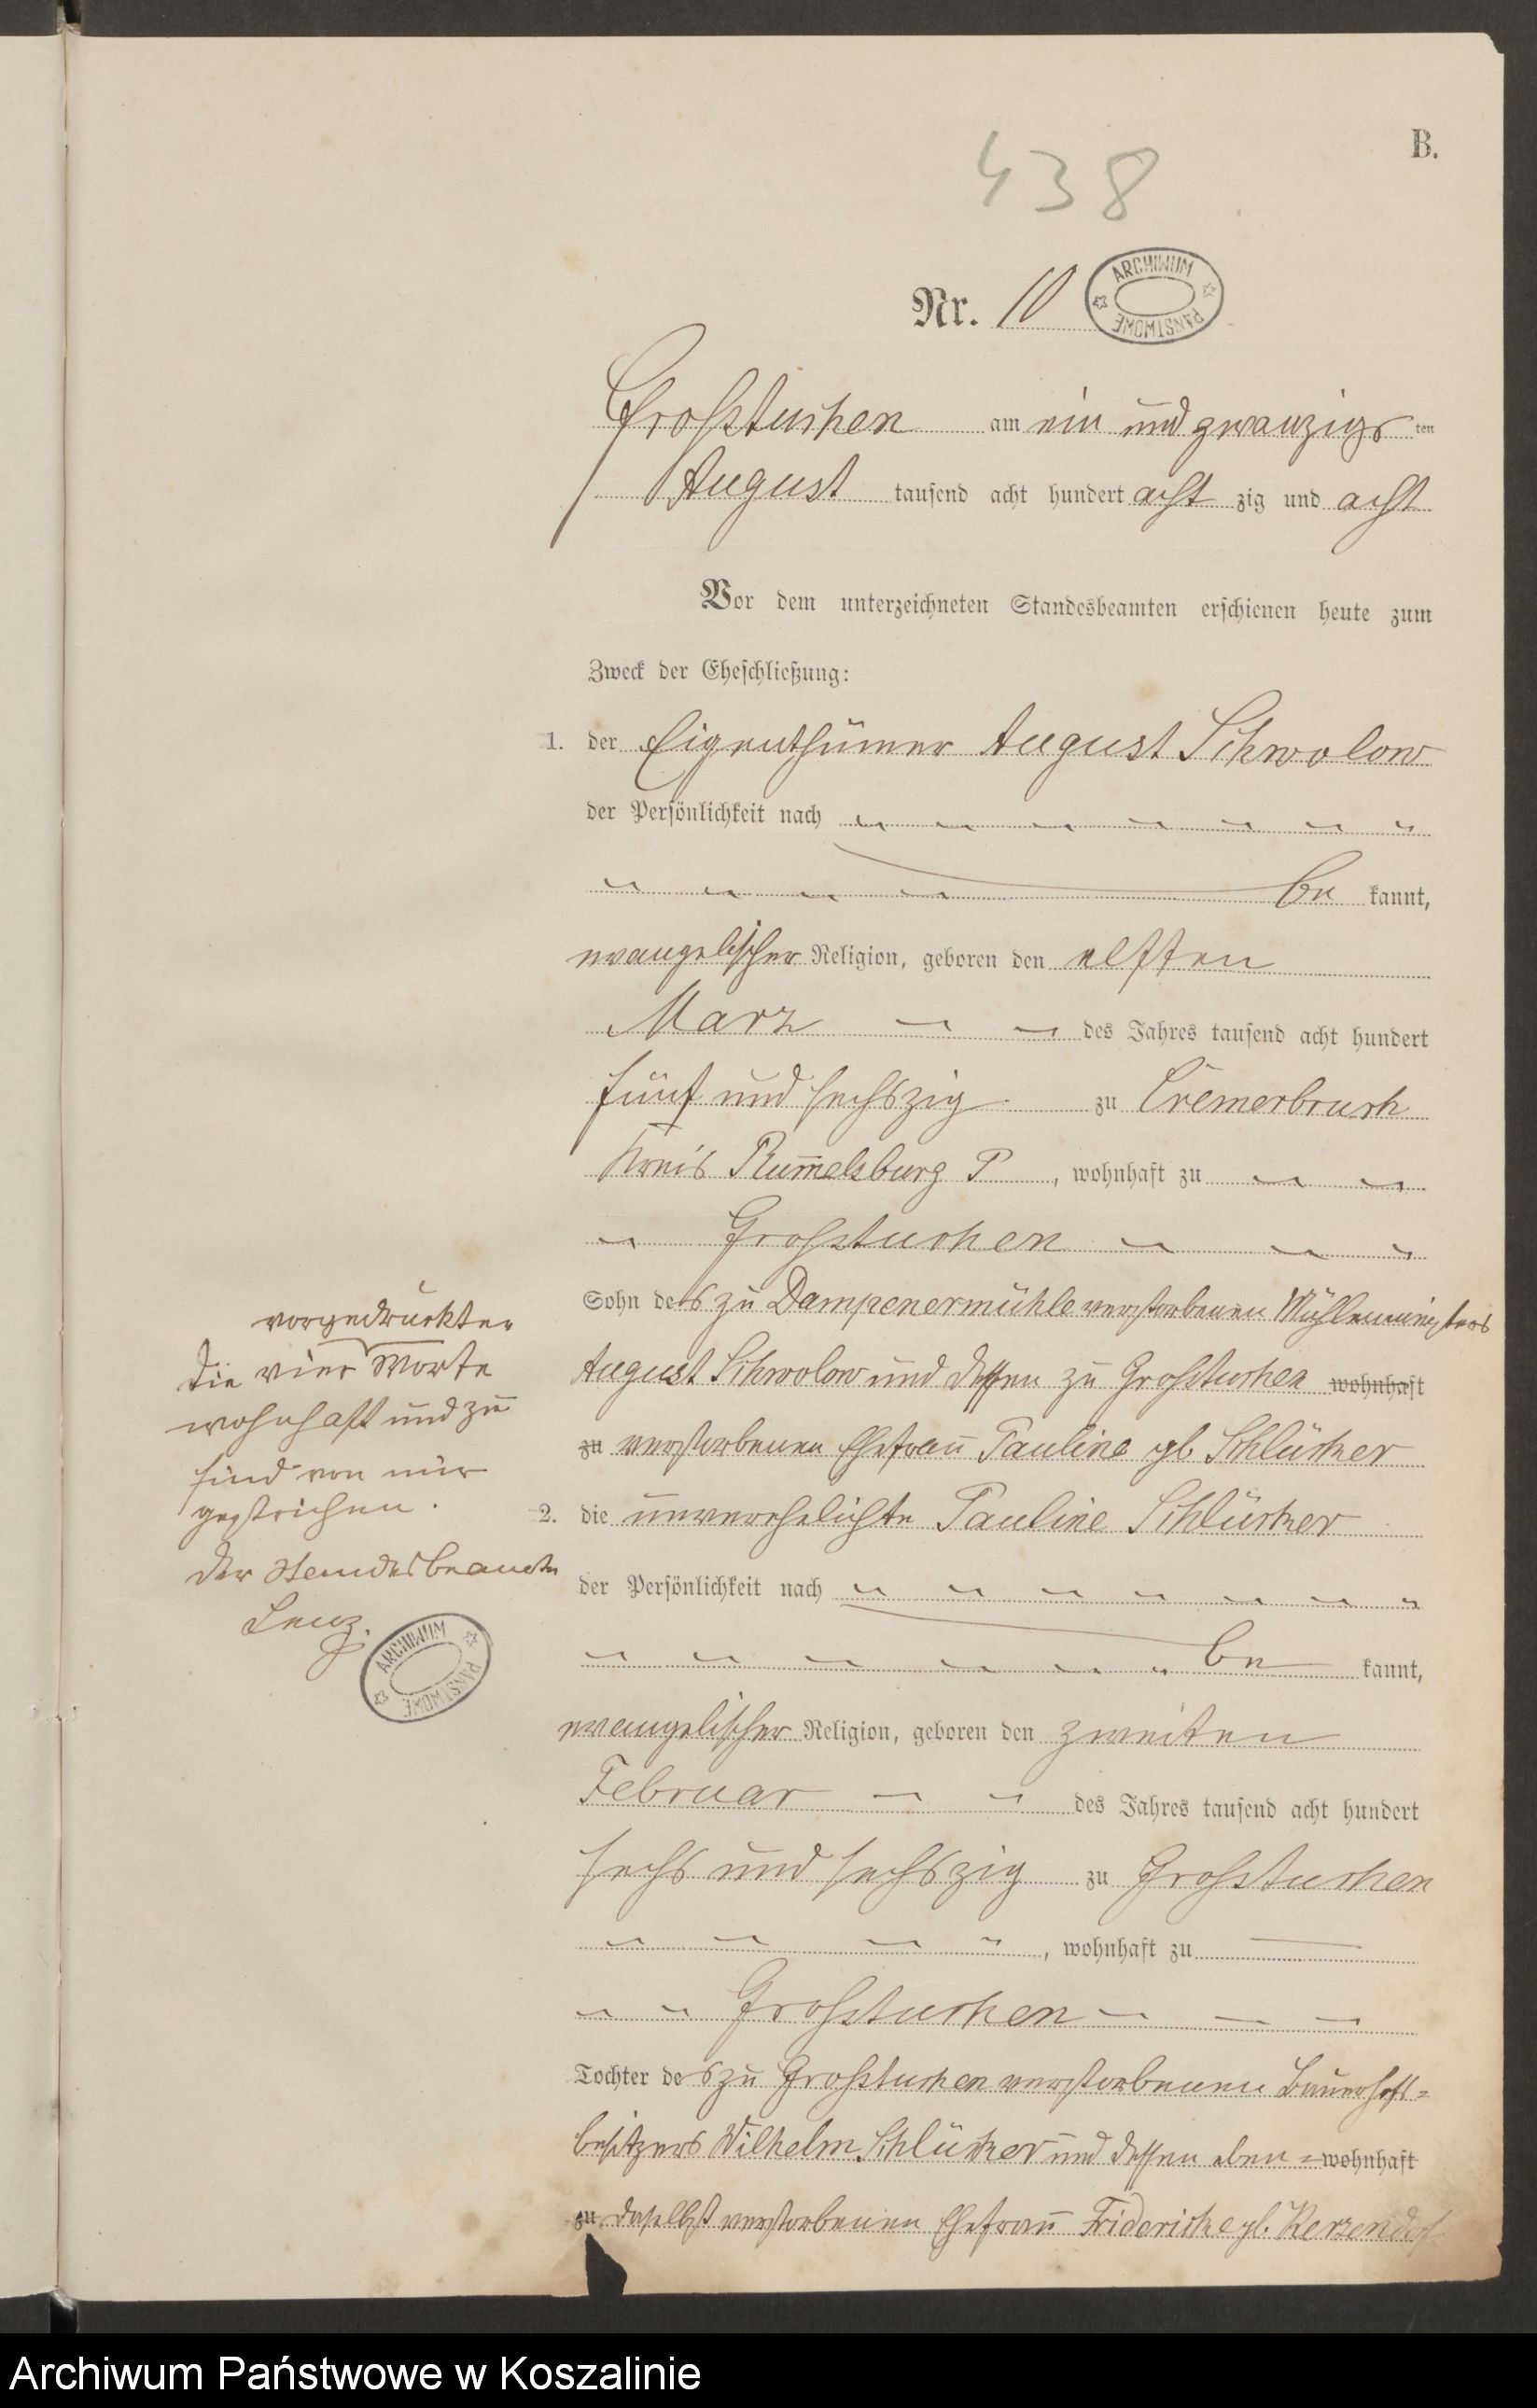 B.
438
Nr. 10
ARCHIWUM PAŃSTWOWE
Großtuchen am ein und zwanzigs ten
August tausend acht hundert acht zig und acht
Vor dem unterzeichneten Standesbeamten erschienen heute zum
Zweck der Eheschließung:
1. der Eigenthümer August Schwolow
der Persönlichkeit nach
be kannt,
evangelischer Religion, geboren den elften
März des Jahres tausend acht hundert
fünf und sechszig zu Cremerbruch
Kreis Rummelsburg P, wohnhaft zu
Großtuchen
Sohn des zu Dampenermühle verstorbenen Mühlenmeisters
August Schwolow und dessen zu Großtuchen wohnhaft
zu verstorbenen Ehefrau Pauline gb Schlücker
2. die unverehelichte Pauline Schlücker
der Persönlichkeit nach
be kannt,
evangelischer Religion, geboren den zweiten
Februar des Jahres tausend acht hundert
sechs und sechszig zu Großtuchen
, wohnhaft zu
Großtuchen
Tochter des zu Großtuchen verstorbenen Bauerhofs=
besitzers Wilhelm Schlücker und dessen eben = wohnhaft
zu daselbst verstorbenen Ehefrau Fridericke gb.
vorgedruckten
die vier Worte
wohnhaft und zu
sind von mir
gestrichen.
Der Standesbeamte
Lenz.
ARCHIWUM PAŃSTWOWE
Archiwum Państwowe w Koszalinie